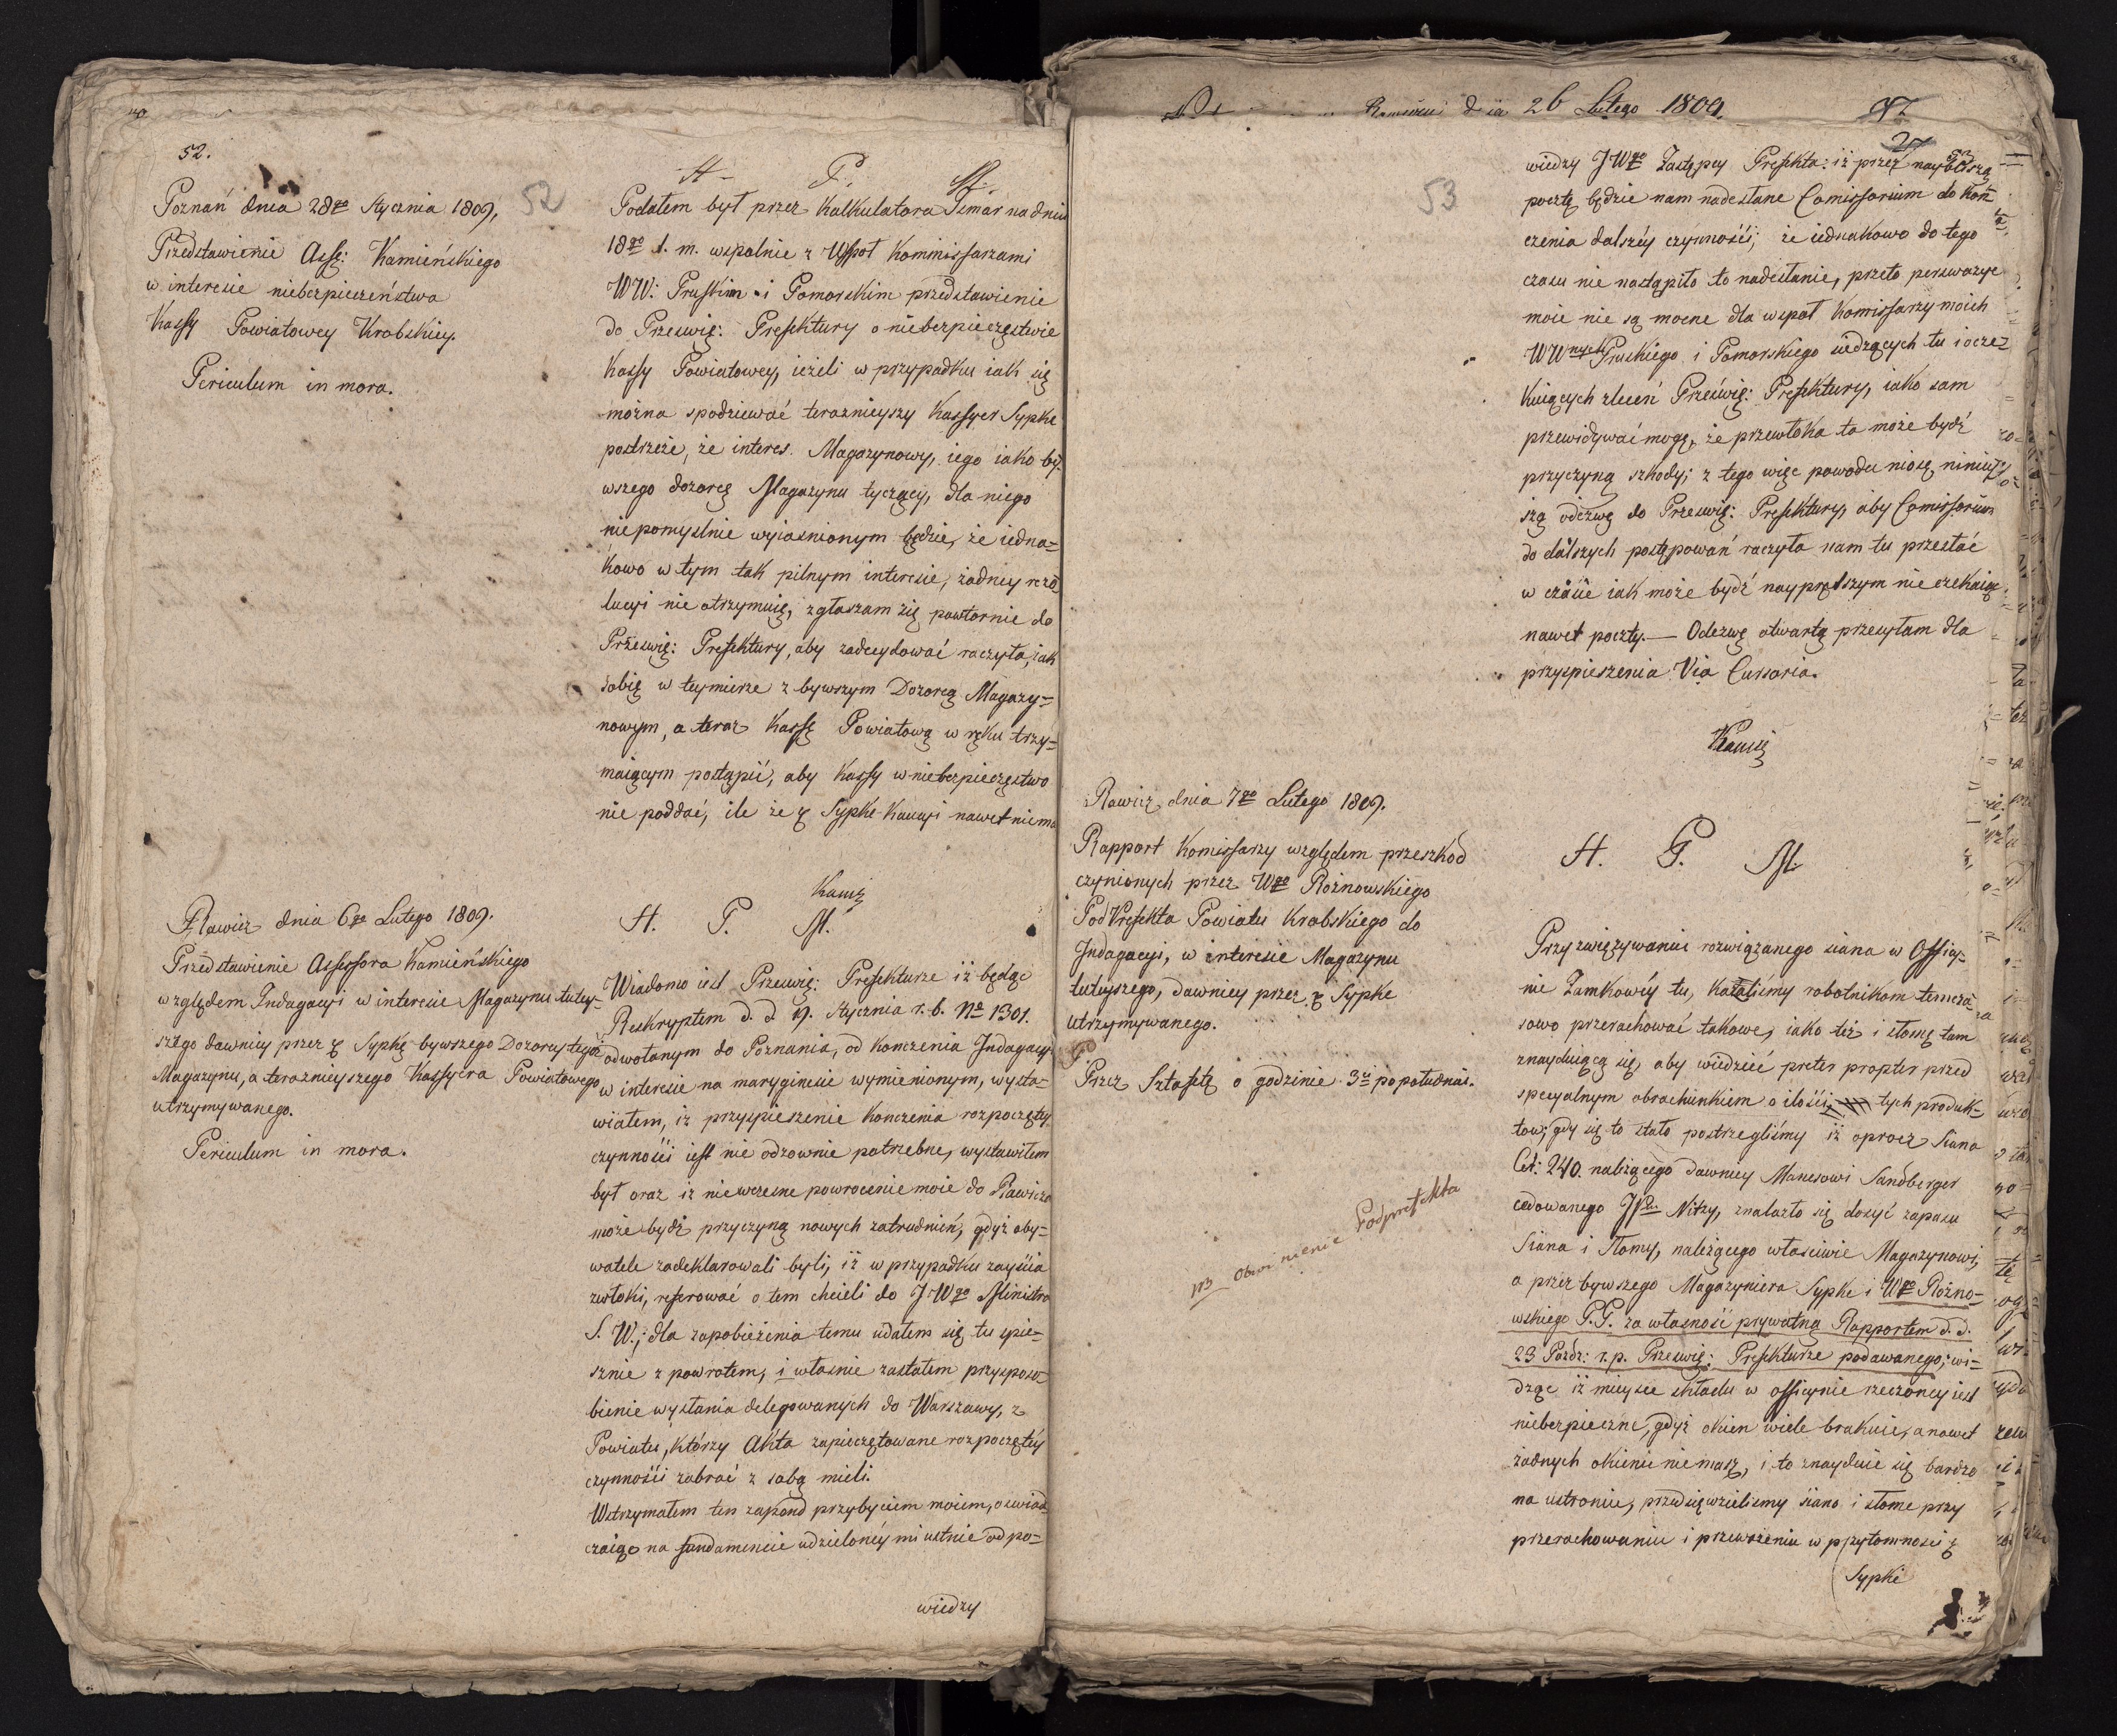 52.
52
Poznań dnia 28go Stycznia 1809.
Przedstawienie Assę: Kamieńskiego
w interesie niebezpieczeństwa
Kassy Powiatowey Krobskiey.
Periculum in mora.
H. P. M.
Podałem był przez Kalkulatora Szmar na dniu
18go t. m. wspolnie z Wspoł Kommissarzami
WW: Pruskim i Pomorskim przedstawienie
do Przeswię: Prefektury o niebezpieczęstwie
Kassy Powiatowey, ieżeli w przypadku iak się
można spodziewać teraznieyszy Kassyer Sypke
postrzeże, że interes Magazynowy, iego iako by-
wszego dozorcę Magazynu tyczący, dla niego
niepomyslnie wyiasnionym będzie, że iedna=
kowo w tym tak pilnym interesie, żadney rezo
lucyi nie otrzymuię, zgłaszam się powtornie do
Przeswię: Prefektury, aby zadecydować raczyła, iak
sobię w teymierze z bywszym Dozorcą Magazy=
nowym, a teraz Kassę Powiatową w ręku trzy=
maiącym postąpić, aby Kassy w niebezpieczęstwo
nie poddać, ile że Sypke Kaucyi nawet niema
Kamię
Rawicz dnia 6go Lutego 1809.
Przedstawienie Assessora Kamieńskiego
względem Indagacyi w interesie Magazynu tutey-
szego dawniey przez Sypkę bywszego Dozorcy tegoż
Magazynu, a teraznieyszego Kassyera Powiatowego
utrzymywanego.
Periculum in mora.
H. P. M.
Wiadomo iest Przeswię: Prefekturze iż będąc
Reskryptem d. d. 9. Stycznia r. b. No 1301.
odwołanym do Poznania, od konczenia Indagacyi
w interesie na maryginesie wymienionym, wysta-
wiałem, iż przyspieszenie konczenia rozpoczętey
czynności iest nie odzownie potrzebne, wystawiłem
był oraz iż niewczesne powrocenie moie do Rawicza
może bydź przyczyną nowych zatrudnień, gdyż oby=
watele zadeklarowali byli, iż w przypadku zayścia
zwłoki, referować o tem chcieli do JWgo Ministra
S. W.; dla zapobieżenia temu udałem się tu spie=
sznie z powrotem, i własnie zastałem przysposo-
bienie wysłania delegowanych do Warszawy, z
Powiatu, którzy Akta zapieczętowane rozpoczętéy
czynności zabrać z sobą mieli.
Wstrzymałem ten zapęd przybyciem moiem, oswiad
czaiąc na fundamencie udzielonéy mi ustnie od po=
wiedzy
Rawiczu dnia 26 Lutego 1809.
27
53
53
wiedzy JWgo Zastępcy Prefekta: iż przez nayblższą
pocztę będzie nam nadesłane Comissorium do koń
czenia dalszéy czynności; że iednakowo do tego
czasu nie nastąpiło to nadesłanie, przeto perswazye
moie nie są mocne dla wspoł Komissarzy moich
WWnych Pruskiego i Pomorskiego siedzących tu i ocze=
kuiących zleceń Prześwię: Prefektury, iako sam
przewidywać mogę, że przewłoka ta może bydź
przyczyną szkody; z tego więc powodu niosę niniey
szą odezwę do Przeswię: Prefektury, aby Comissorium
do dalszych postępowań raczyła nam tu przesłać
w czasie iak może bydź nayprędszym nie czekaiąc
nawet poczty. — Odezwę otwartą przesyłam dla
przyspieszenia Via Cursoria.
Kamię
Rawicz dnia 7go Lutego 1809.
Rapport Komissarzy względem przeszkod
czynionych przez Wgo Rożnowskiego
PodPrefekta Powiatu Krobskiego do
Indagacyi, w interesie Magazynu
tuteyszego, dawniey przez Sypke
utrzymywanego.
Przez Sztafetę o godzinie 3éi popołudniu.
NB Obwinienie Podprefekta
H. P. M.
Przy zwięzywaniu rozwiązanego siana w Officy-
nie Zamkowéy tu, kazaliśmy robotnikom temcza
sowo przerachować takowe, iako też i słomę tam
znayduiącą się, aby wiedzieć preter propter przed
specyalnym obrachunkiem o ilości tych produk=
tow; gdy się to stało postrzegliśmy iż oprocz Siana
Cet: 240. należącego dawniey Manesowi Sandberger
cedowanego JPu Nitzy, znalazło się dosyć zapasu
Siana i Słomy, należącego własciwie Magazynowi,
a przez bywszego Magazyniera Sypke i Wgo Rożno-
wskiego P.P. za własność prywatną Rapportem d. d.
23 Paźdz: r. p. Przeswię: Prefekturze podawanego; wi=
dząc iż mieysce składu w officynie rzeczoney iest
niebezpieczne, gdyż okien wiele brakuie, a nawet
żadnych okienic niemasz, i to znayduie się bardzo
na ustroniu, przedsięwzielismy siano i słome przy
przerachowaniu i przeważeniu w przytomności
Sypke